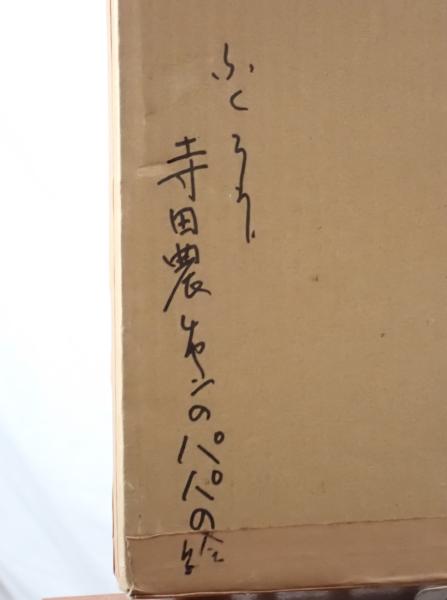 ふくろう
寺田農ちゃんのパパの絵